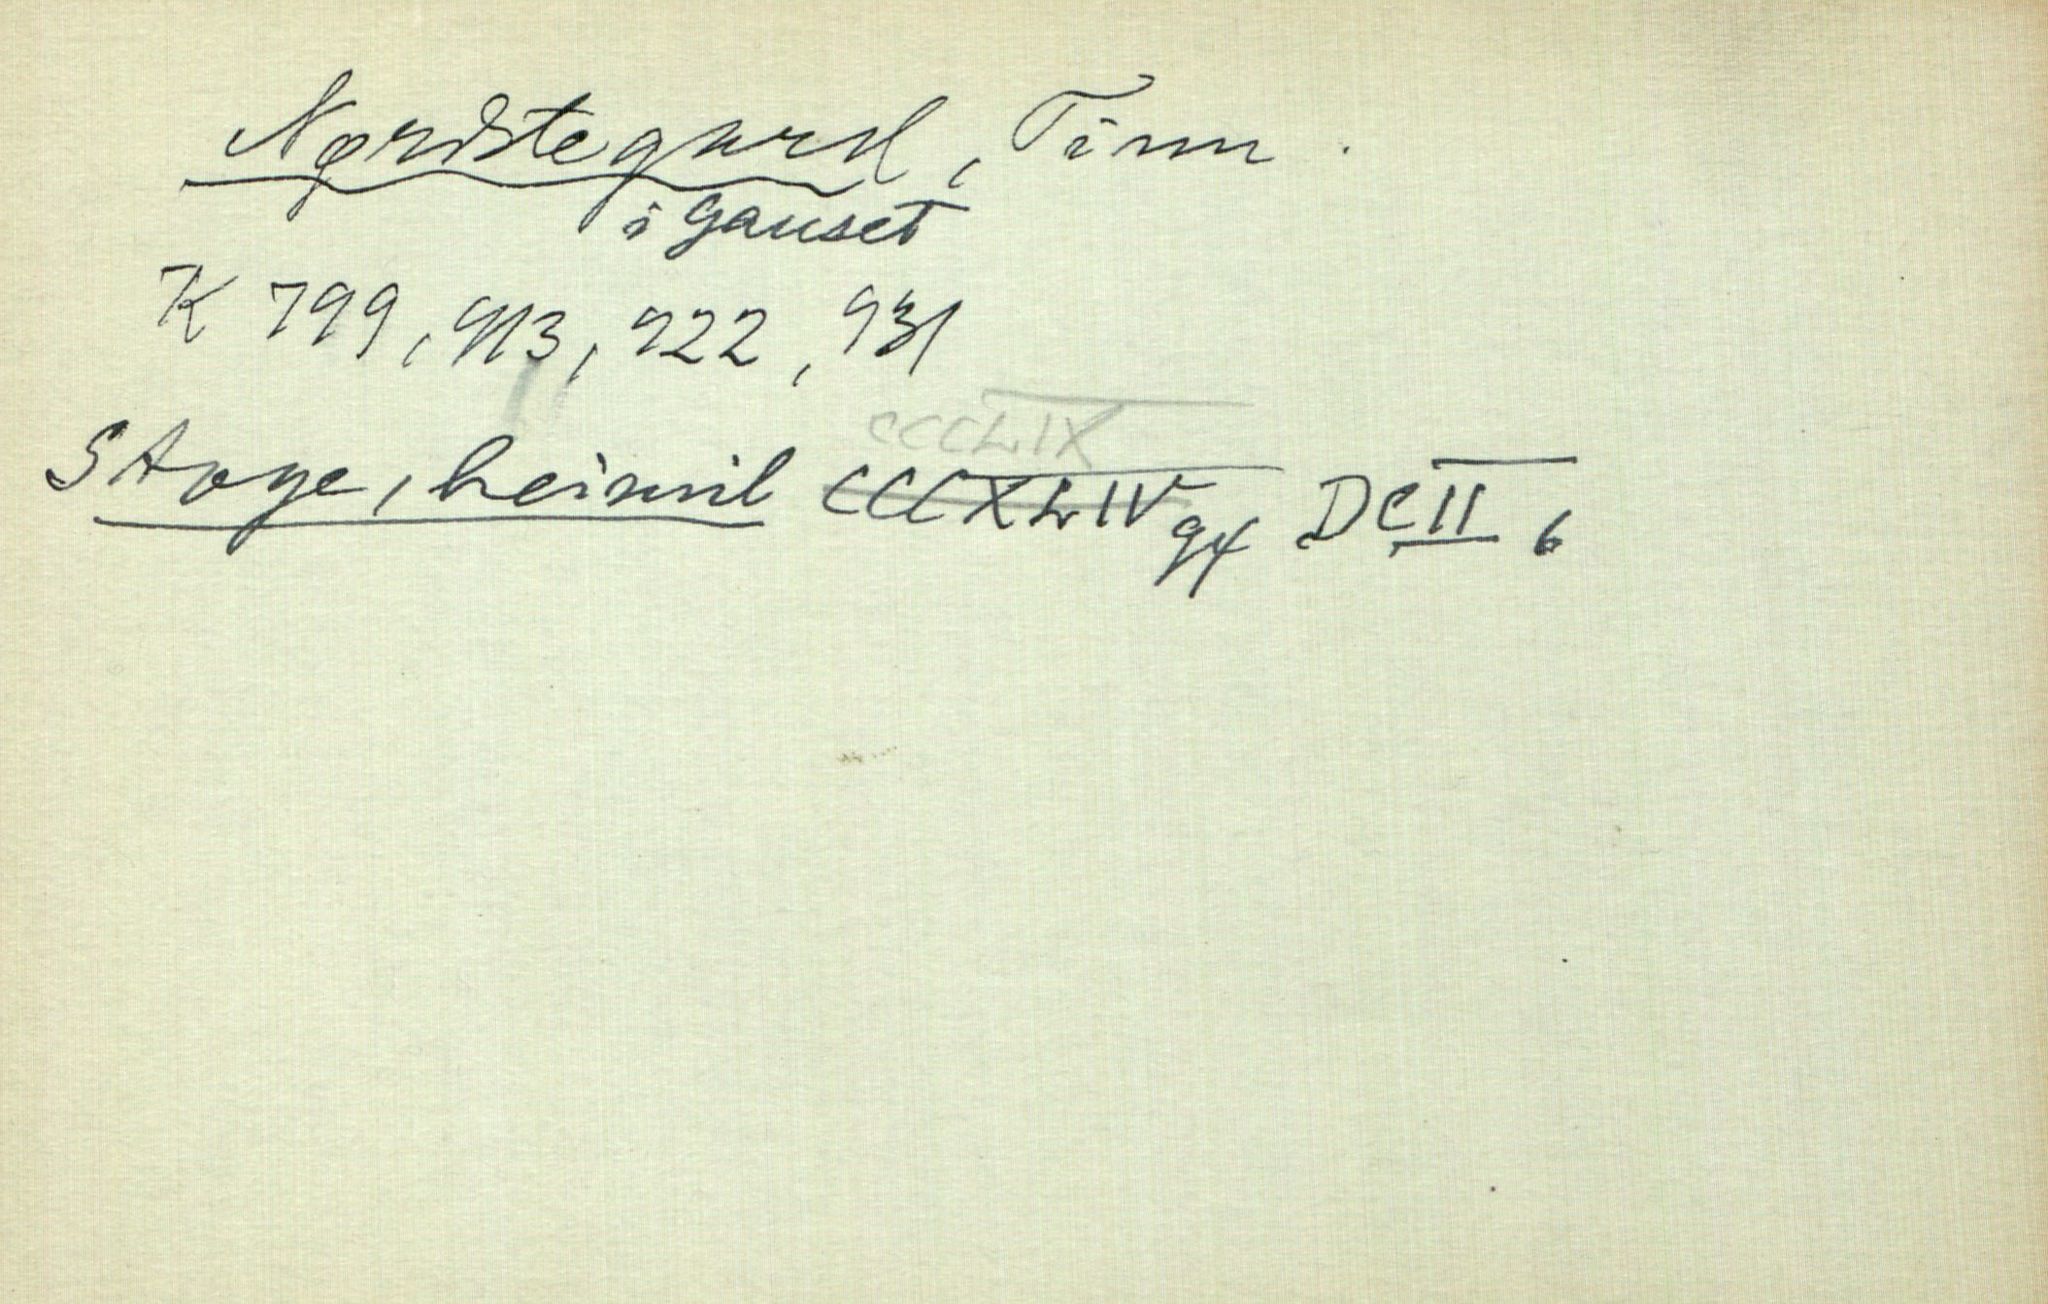 Nørdstegard, Tinn.
i Gauset
K 799, 913, 922, 931
CCCLIX
Stoge, heimil CCCXLIV 94 DCII 6